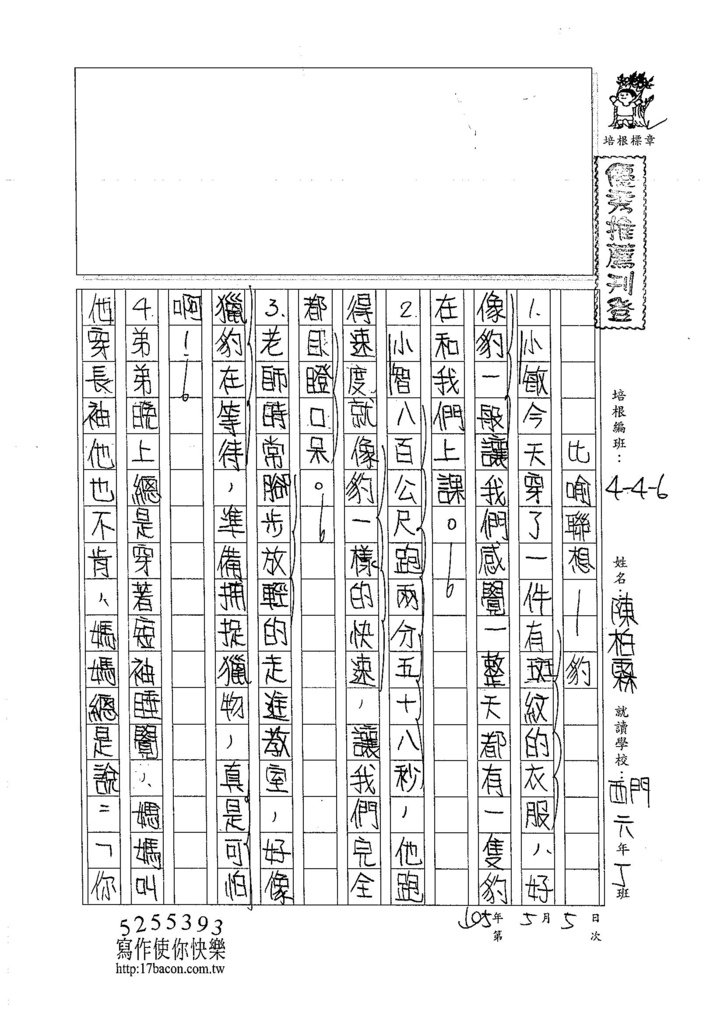 培根標章
優秀推薦刊登
培根編班：4-4-6
姓名：陳柏霖
就讀學校：西門六年丁班
105年5月5日
第 次
比喻聯想—豹
1.小敏今天穿了一件有斑紋的衣服，好
像豹一般讓我們感覺一整天都有一隻豹
在和我們上課。
2.小智八百公尺跑兩分五十八秒，他跑
得速度就像豹一樣的快速，讓我們完全
都目瞪口呆。
3.老師時常腳步放輕的走進教室，好像
獵豹在等待，準備捕捉獵物，真是可怕
啊！
4.弟弟晚上總是穿著短袖睡覺，媽媽叫
他穿長袖他也不肯，媽媽總是說：「你
5255393
寫作使你快樂
http:17bacon.com.tw